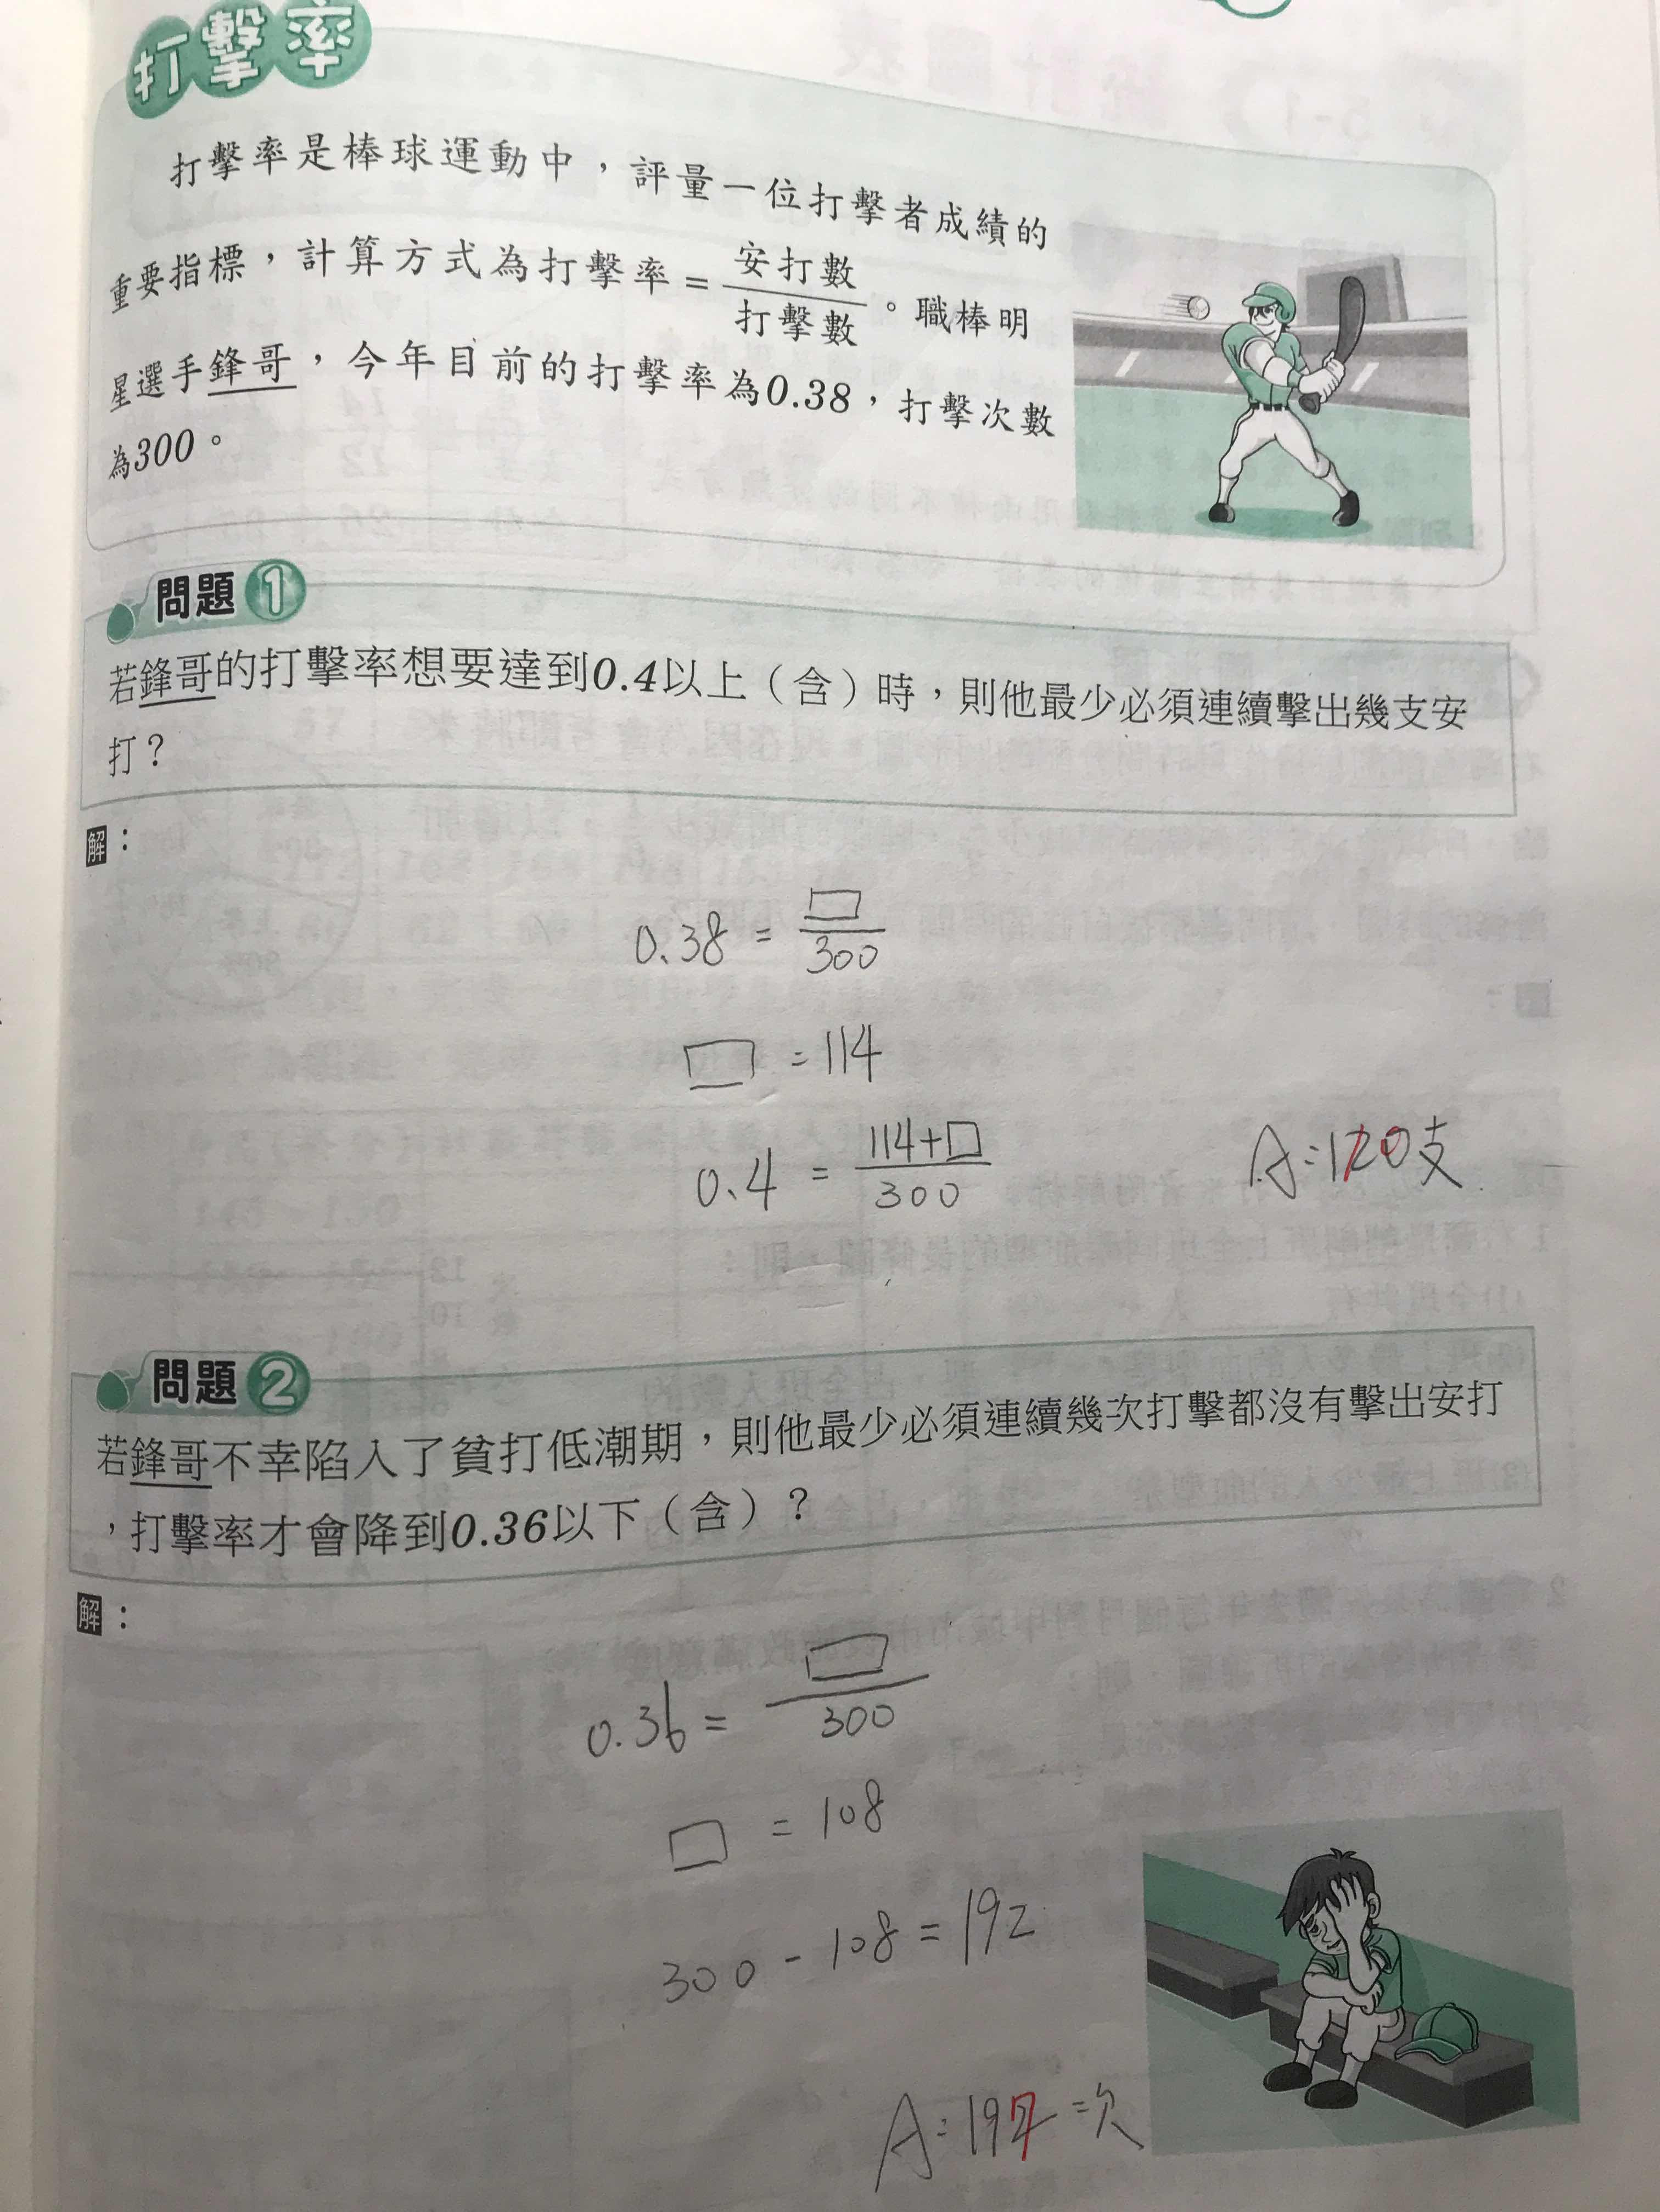 打擊率
打擊率是棒球運動中，評量一位打擊者成績的
重要指標，計算方式為打擊率=安打數/打擊數。職棒明
星選手鋒哥，今年目前的打擊率為0.38，打擊次數
為300。
問題1
若鋒哥的打擊率想要達到0.4以上（含）時，則他最少必須連續擊出幾支安
打？
解：
0.38 = □/300
□ = 114
0.4 = (114+□)/300
A=120支
問題2
若鋒哥不幸陷入了貧打低潮期，則他最少必須連續幾次打擊都沒有擊出安打
，打擊率才會降到0.36以下（含）？
解：
0.36 = □/300
□ = 108
300 - 108 = 192